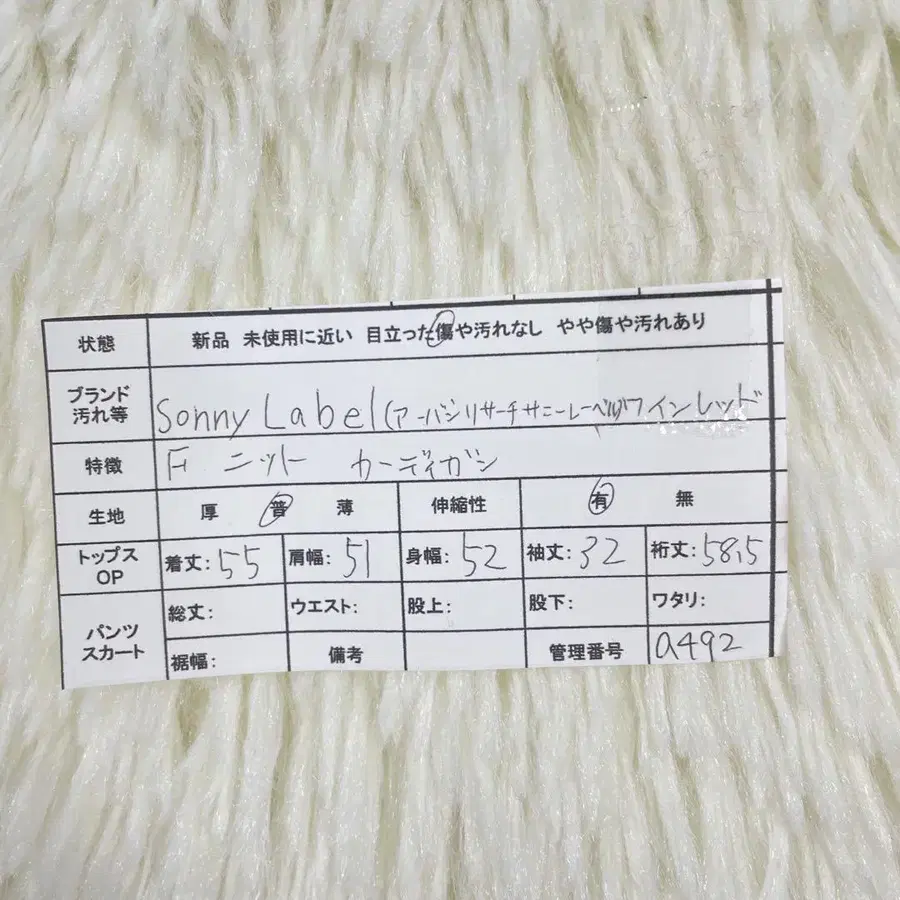 状態 新品 未使用に近い 目立った傷や汚れなし やや傷や汚れあり
ブランド
汚れ等 Sonny Label(アーバンリサーチサニーレーベル)ワインレッド
特徴 F ニット カーディガン
生地 厚 普 薄 伸縮性 有 無
トップス
OP 着丈:55 肩幅:51 身幅:52 袖丈:32 裄丈:58.5
パンツ
スカート 総丈: ウエスト: 股上: 股下: ワタリ:
裾幅: 備考 管理番号 a492